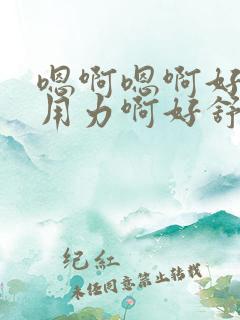 嗯啊嗯啊好
用力啊好舒
纪红
未经同意禁止转载